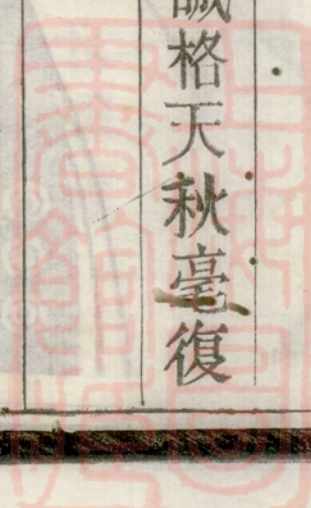 誠格天秋毫復